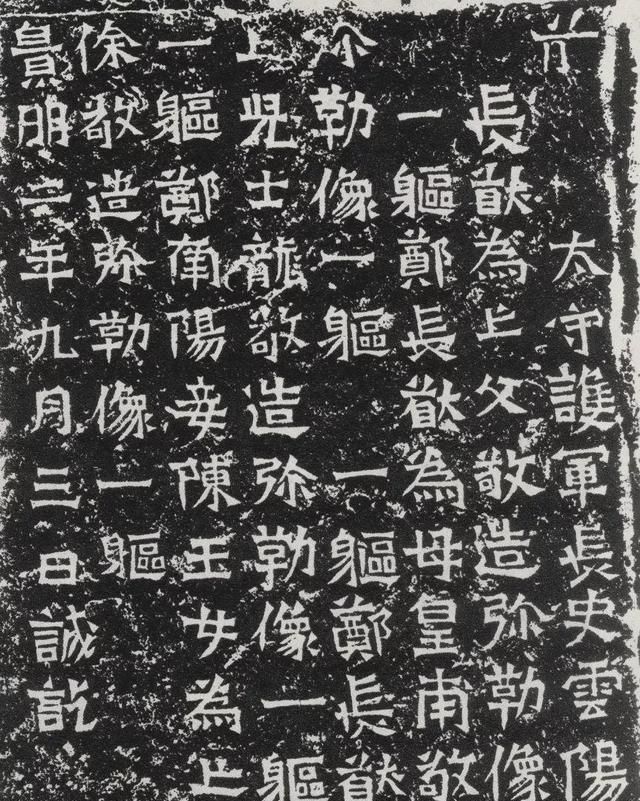 太守護軍長史雲陽
長猷為亡父敬造弥勒像
一軀鄭長猷為母皇甫敬
弥勒像一軀一軀鄭長猷
亡児士龍敬造弥勒像一軀
一軀鄭南陽妾陳玉女為亡
徐敬造弥勒像一軀
景明二年九月三日誡訖